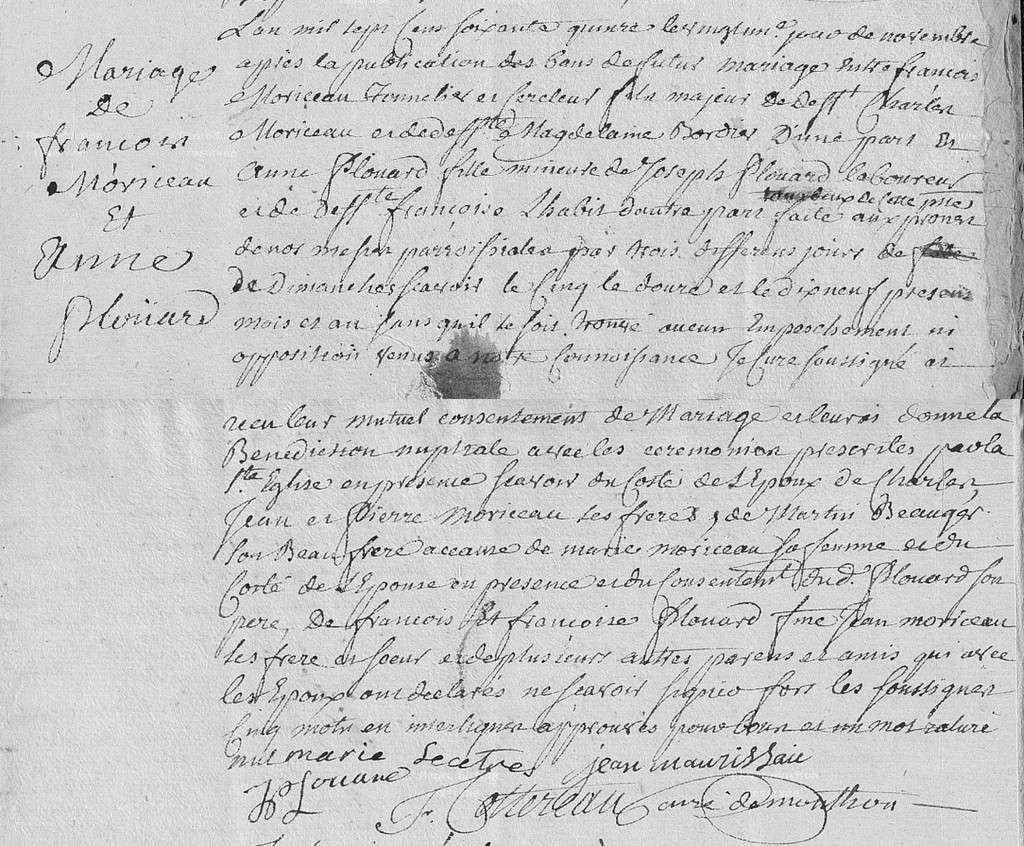 Mariage
de
françois
Moriceau
Et
Anne
Ploüard
L'an mil sept Cens soixante quinze le vingtun.e jour de novembre
après la publication des bans de futur mariage entre françois
Moriceau Tonnelier et Cercleur fils majeur de deff.t Charles
Moriceau et de deff.te Magdelaine Bordier d'une part Et
Anne Plouard fille mineure de Joseph Plouard laboureur
tous deux de cette p.sse
et de deff.te françoise Lhabit d'autre part faite aux prones
de nos messes parroissiales par trois differens jours de
de Dimanches scavoir le Cinq le douze et le dixneuf presens
mois et an sans qu'il se soit trouvé aucun Empeschement ni
opposition venus a notre Connoissance Je Curé soussigné ai
recu leur mutuel consentement de Mariage et leur ai donné la
Benediction nuptiale avec les ceremonies prescrites par la
s.te Eglise en presence scavoir du Costé de l'Epoux de Charles
Jean et Pierre Moriceau ses freres, de Martin Beauger
son Beaufrere a cause de marie moriceau sa femme et du
Costé de l'Epouse en presence et du Consentem.t du d. Plouard son
pere, de françois Et françoise Plouard fme Jean moriceau
ses frere et soeur et de plusieurs autres parens et amis qui avec
les Epoux ont declarés ne scavoir signer fors les soussignés
Cinq mots en interlignes approuvés pour bons et un mot raturé
nul marie jean maurissau
Plouare
F. Cottereau curé de monthou